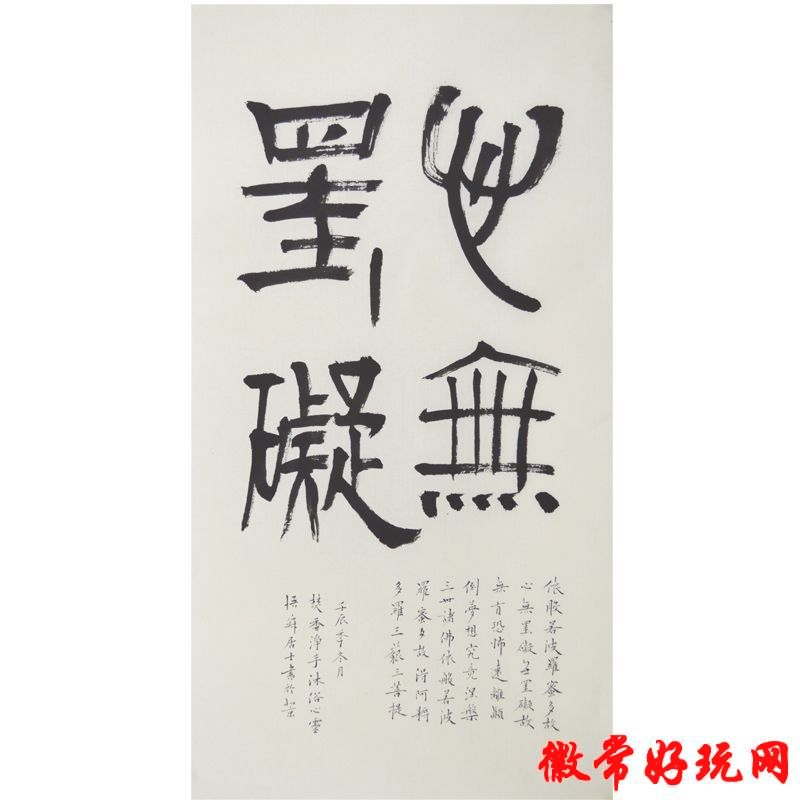 心無
罣礙
依般若波羅蜜多故
心無罣礙无罣礙故
無有恐怖遠離顛
倒夢想究竟涅槃
三世諸佛依般若波
羅蜜多故得阿耨
多羅三藐三菩提
壬辰秊冬月
焚香淨手沐浴心靈
悟居士書於北京
徽常好玩网